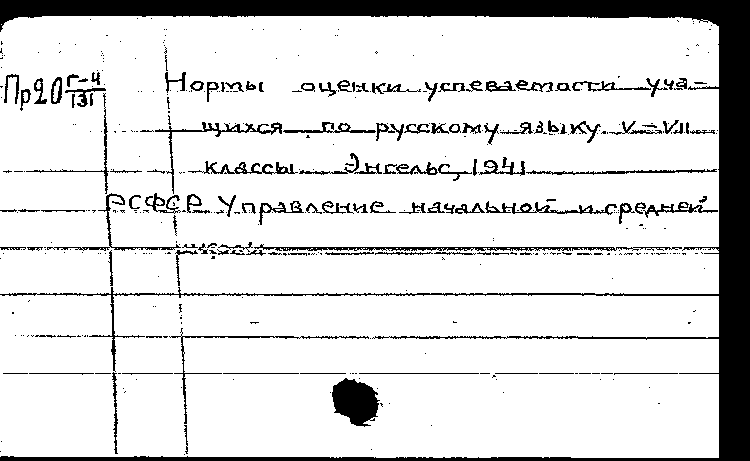 Пр20 Г-4/131 Нормы оценки успеваемости уча-
щихся по русскому языку V-VII
классы. Энгельс, 1941
РСФСР Управление начальной и средней
школы